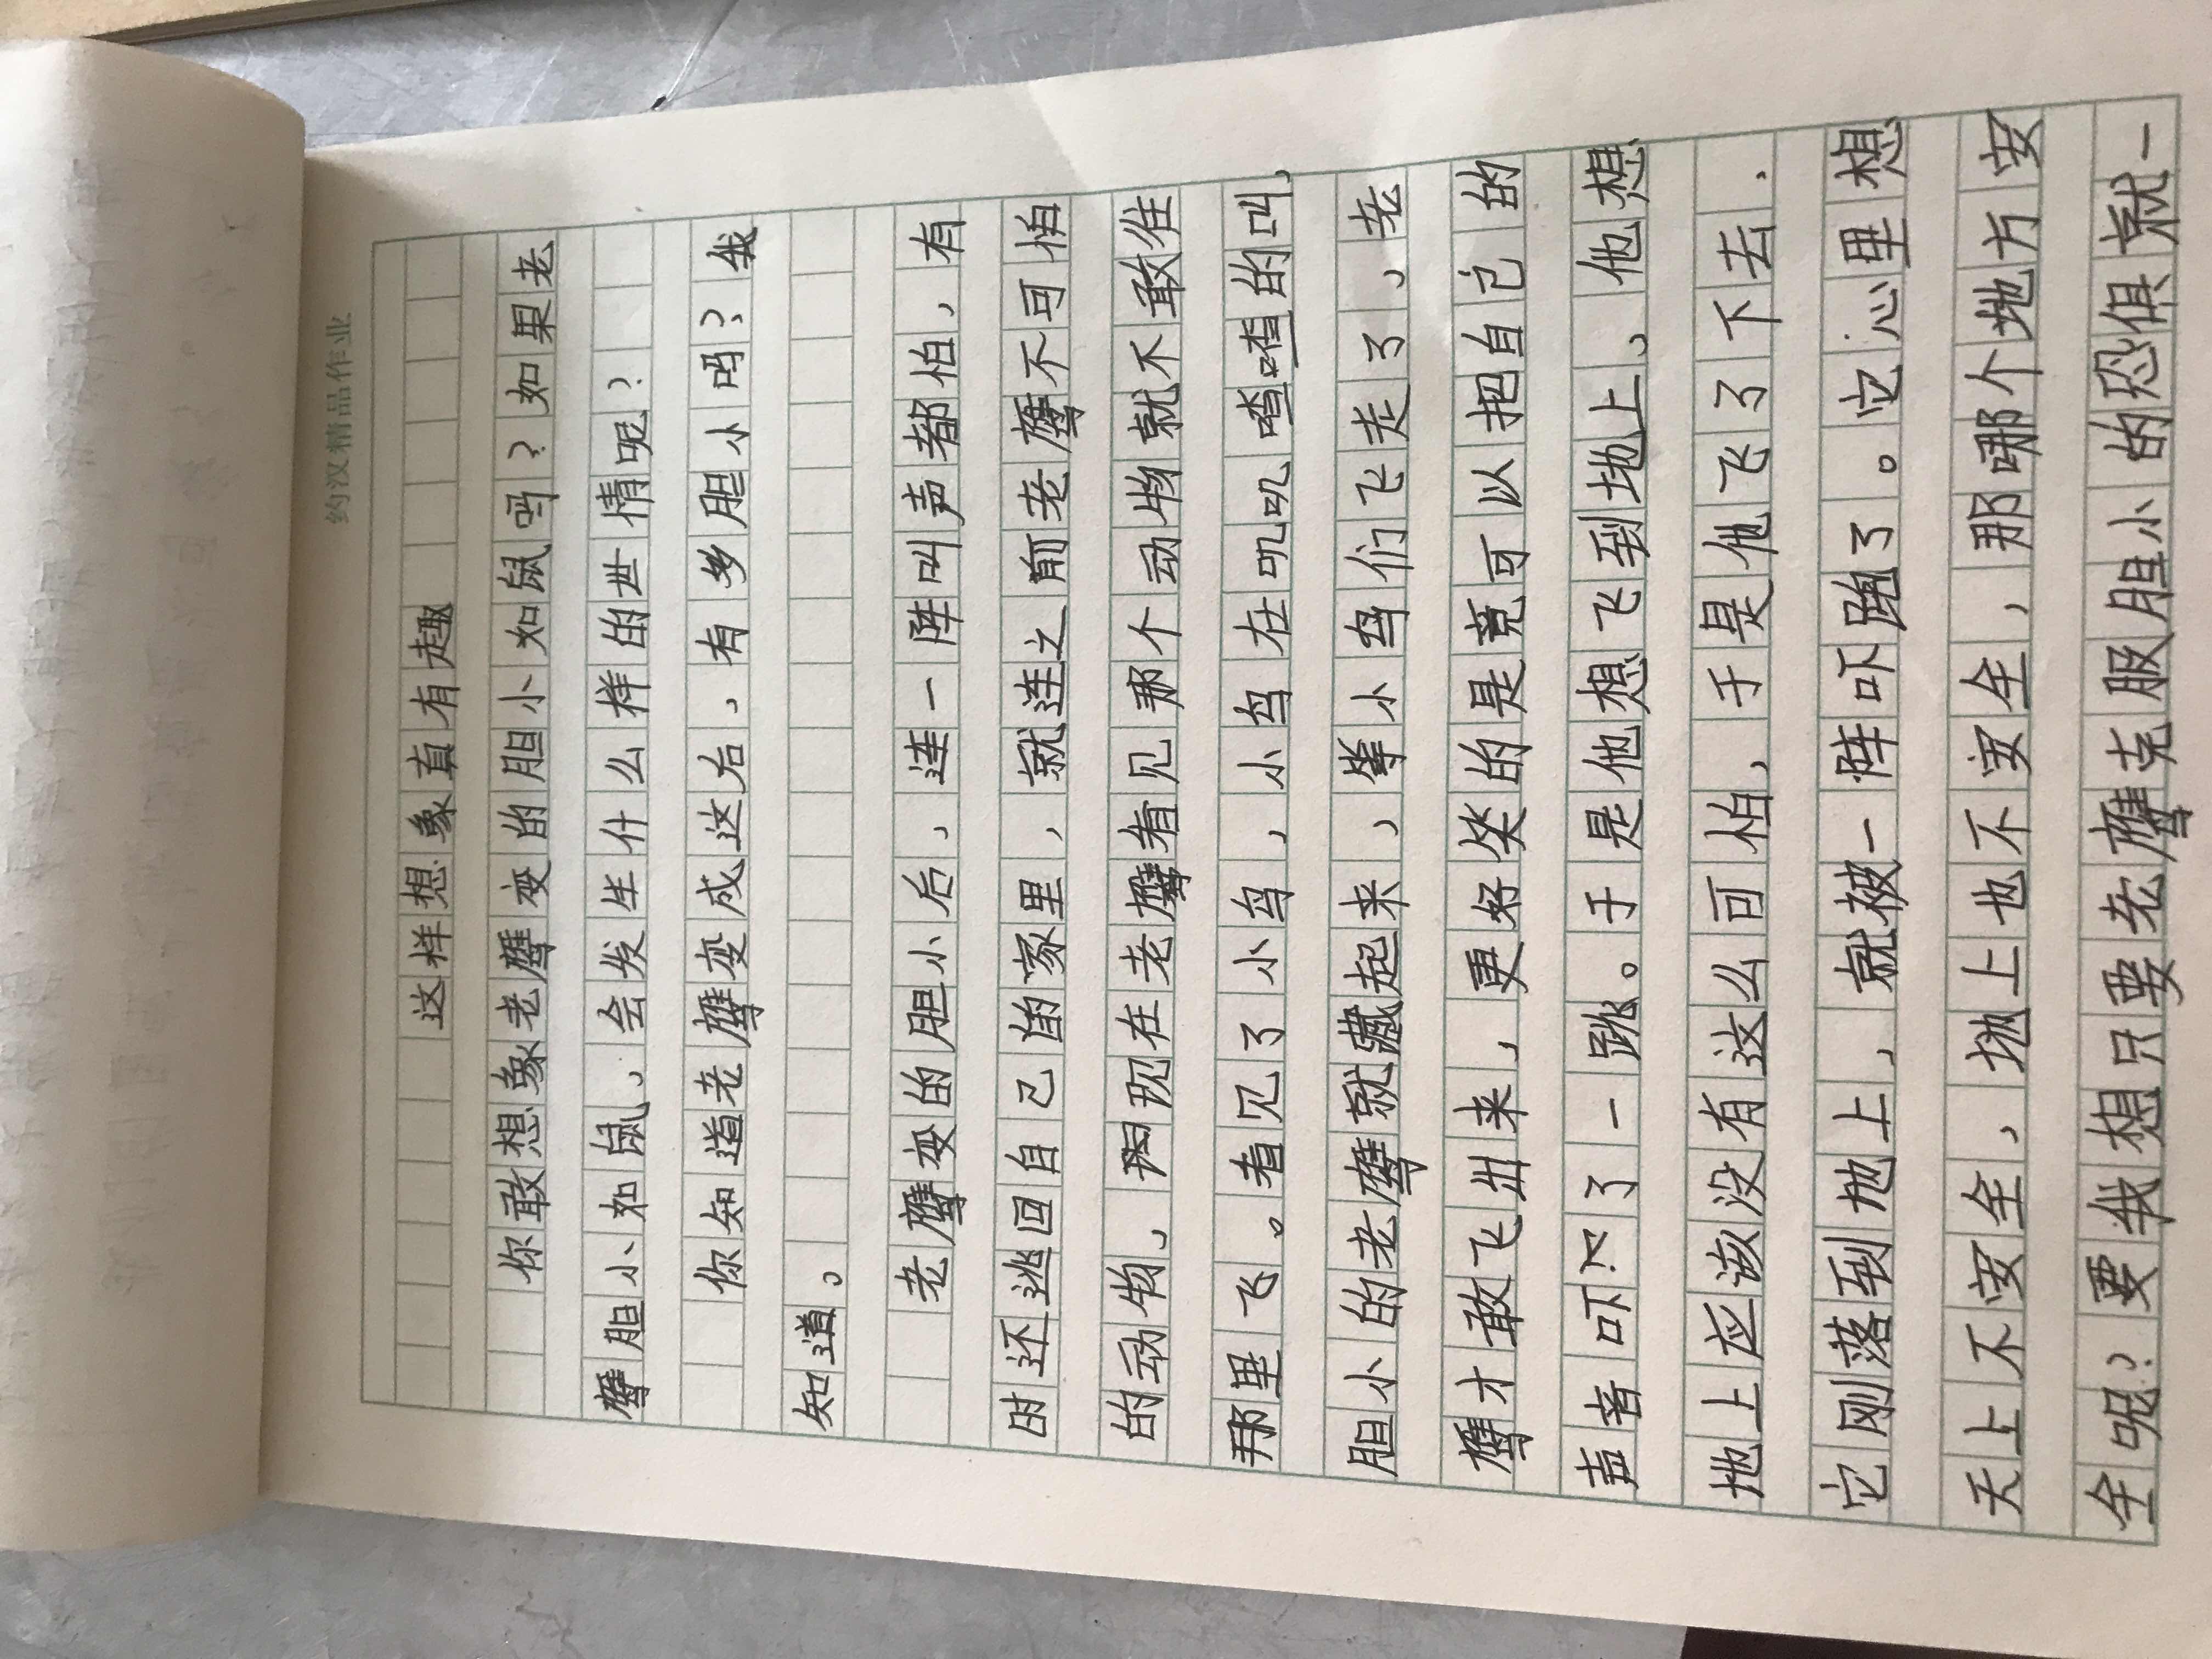 约汉精品作业
这样想象真有趣
你敢想象老鹰变的胆小如鼠吗？如果老
鹰胆小如鼠，会发生什么样的世情呢？
你知道老鹰变成这后，有多胆小吗？我
知道。
老鹰变的胆小后，连一阵叫声都怕，有
时还逃回自己的家里，就连之前老鹰不可怕
的动物，现在老鹰看见那个动物就不敢往
那里飞。看见了小鸟，小鸟在叽叽喳喳的叫，
胆小的老鹰就藏起来，等小鸟们飞走了，老
鹰才敢飞出来，更好笑的是竟可以把自己的
声音吓了一跳。于是他想飞到地上，他想
地上应该没有这么可怕，于是他飞了下去．
它刚落到地上，就被一阵吓跑了。它心里想
天上不安全，地上也不安全，那哪个地方安
全呢？要我想只要老鹰克服胆小的恐俱就一